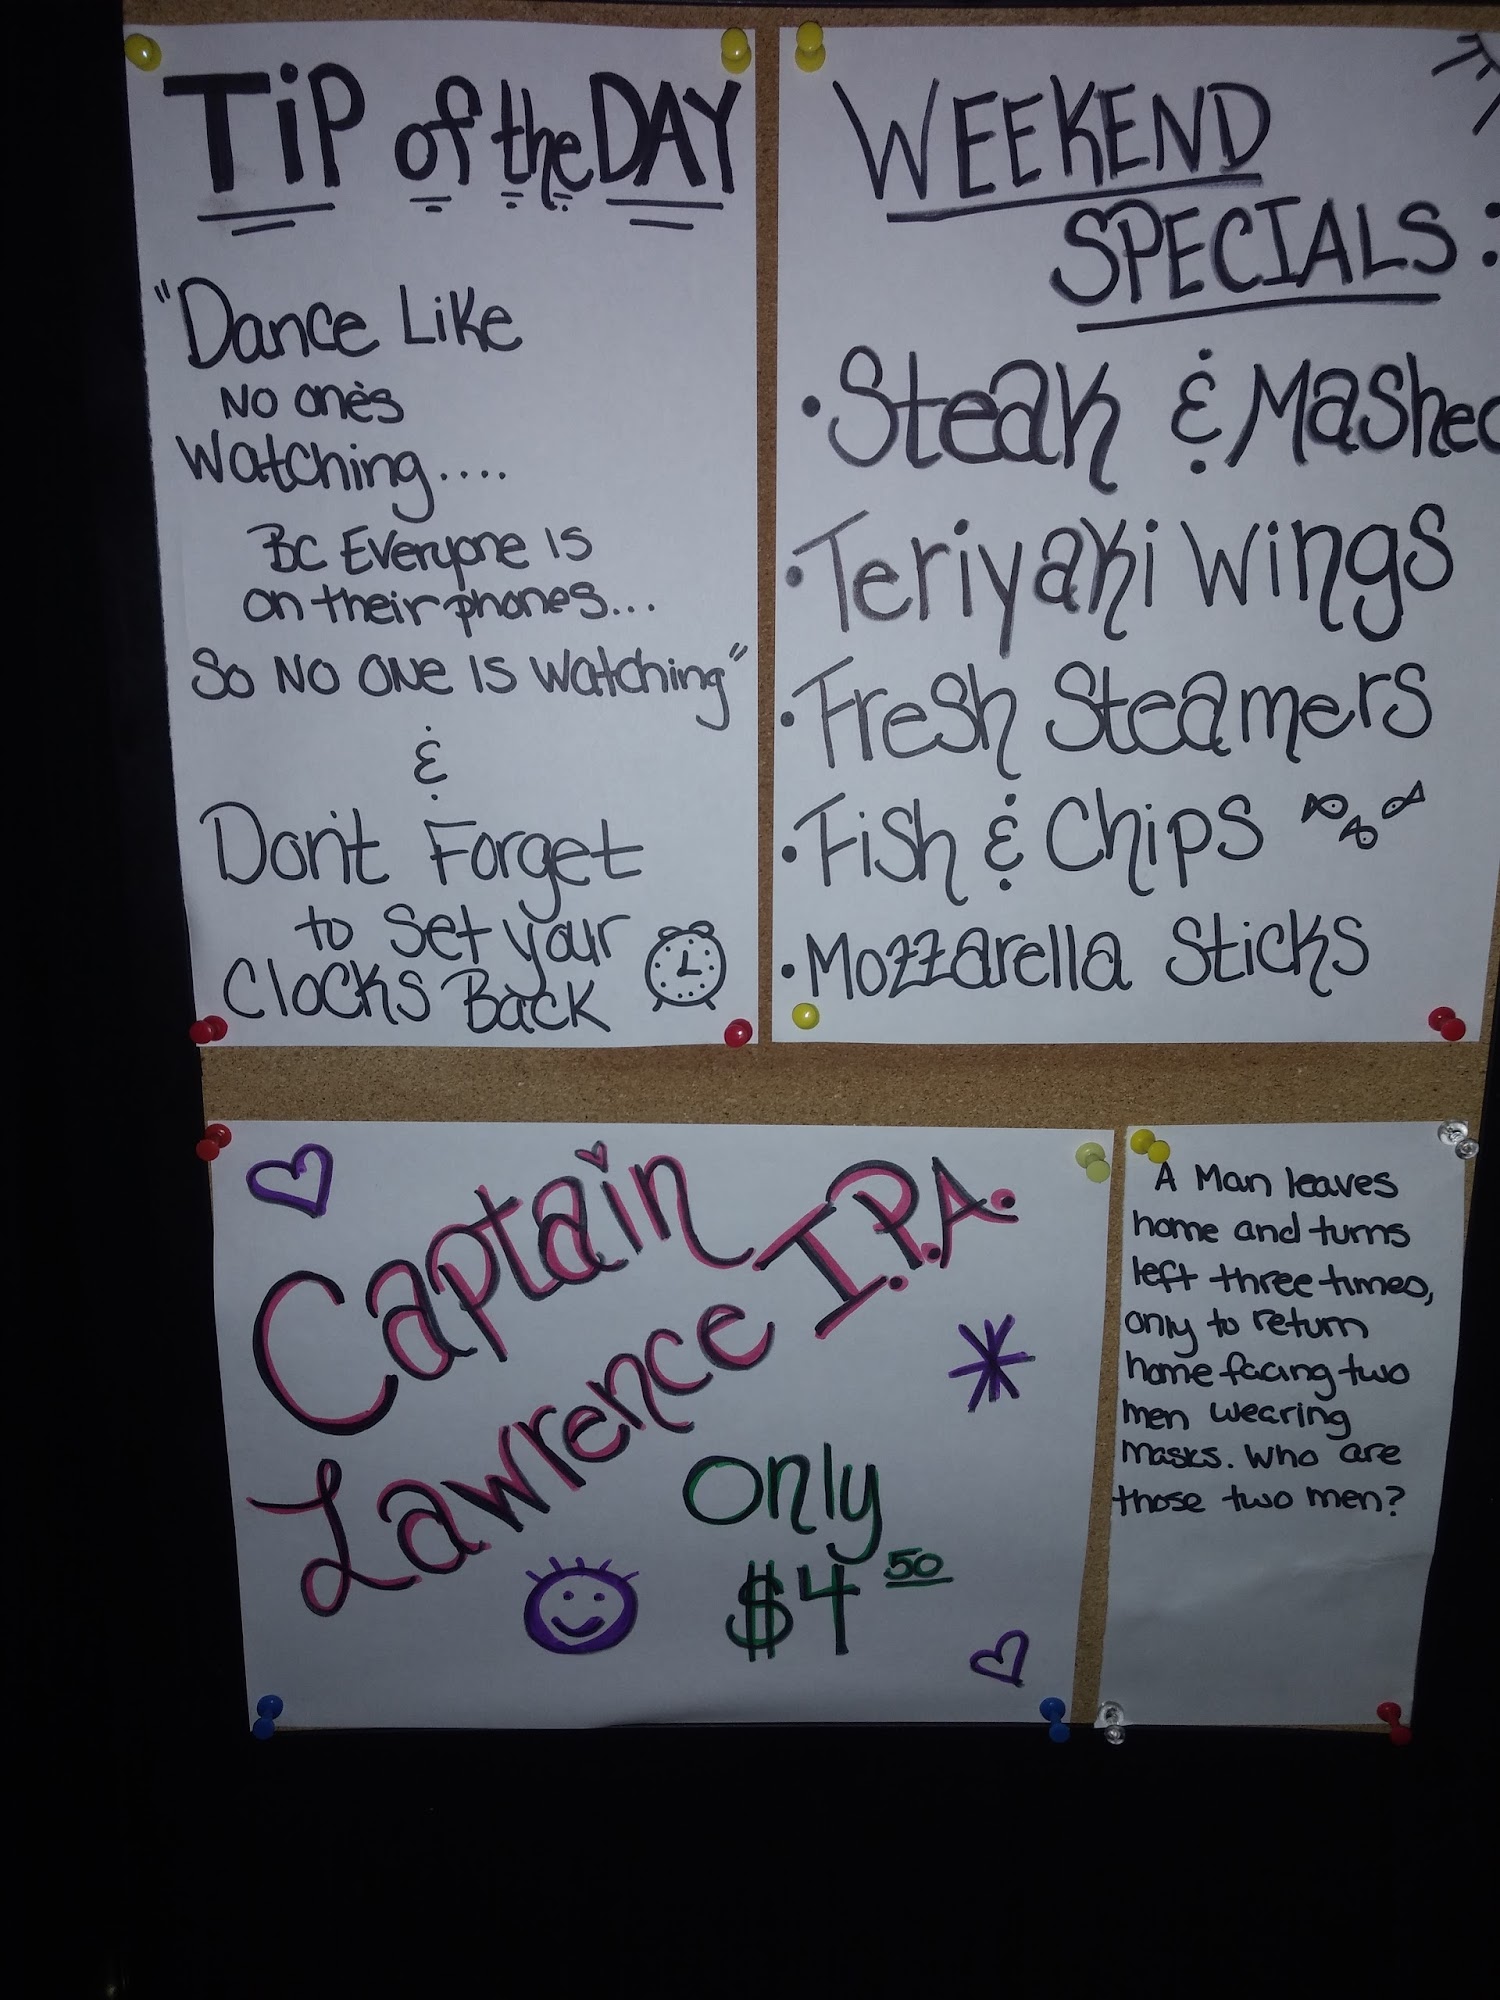 TiP of the DAY
"Dance Like
No one's
Watching....
BC Everyone is
on their phones...
So No One is watching"
&
Don't Forget
to set your
Clocks Back
WEEKEND
SPECIALS:
• Steak & Mashed
• Teriyaki Wings
• Fresh Steamers
• Fish & Chips
• Mozzarella Sticks
Captain
Lawrence I.P.A.
only
$4 50
A Man leaves
home and turns
left three times,
only to return
home facing two
men wearing
masks. Who are
those two men?